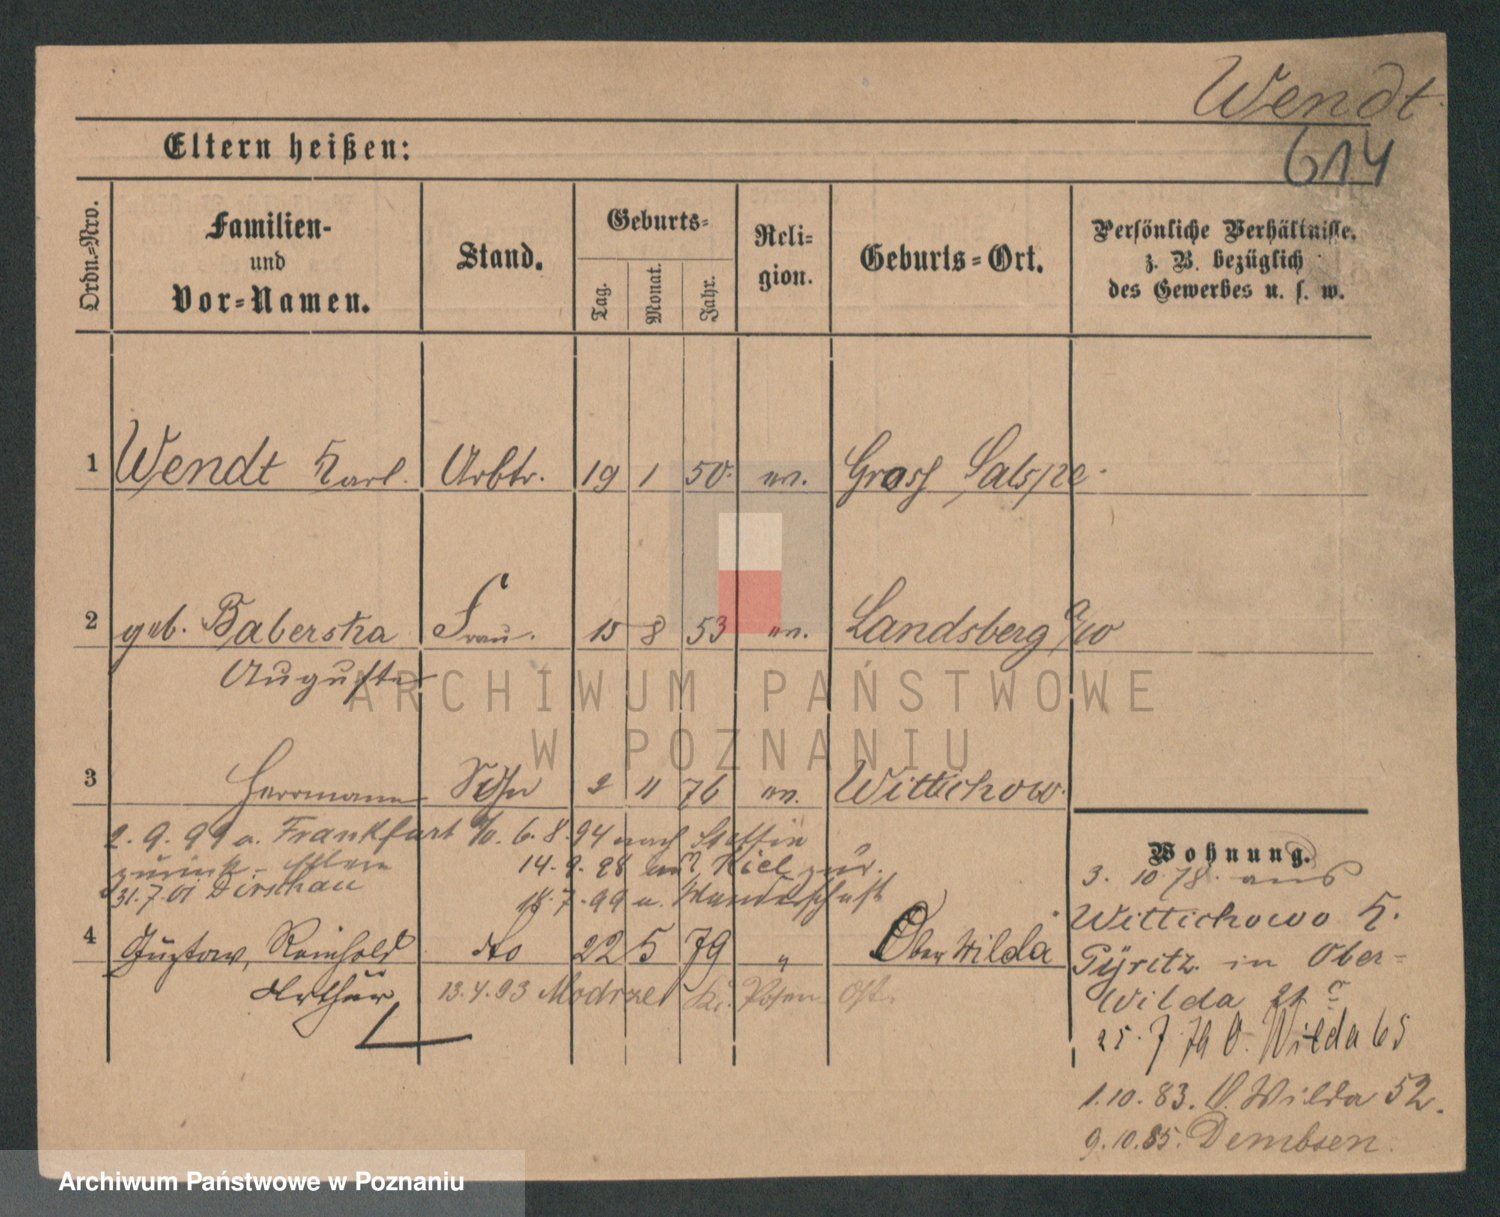 Wendt
614
Eltern heißen:
Ordn.-Nro.
Familien-
und
Vor-Namen.
Stand.
Geburts-
Tag.
Monat.
Jahr.
Reli-
gion.
Geburts-Ort.
Persönliche Verhältnisse,
z. B. bezüglich
des Gewerbes u. s. w.
1 Wendt Karl. Arbtr. 19 1 50. ev. Gross
2 geb. Baberska Frau. 15 8 53 ev. Landsberg a/w
Auguste
3 Herrmann Sohn 2 11 76 ev. Wittichow.
2. 9. 99 a. Frankfurt a/o. 6. 8. 94 nach Stettin
zurück 14. 9. 98 Kiel zur.
31. 7. 01 Dirschau 18. 7. 99 a. Wanderschaft
4 Gustav, Reinhold do 22 5 79 " Ober Wilda
Arthur 13. 4. 93 Modrze Kr. Posen Ost.
Wohnung.
3. 10. 78. aus
Wittichowo K.
Pyritz in Ober-
Wilda 21
25. 7 79 O. Wilda 65
1. 10. 83. O. Wilda 52.
9. 10. 85. Dembsen.
ARCHIWUM PAŃSTWOWE
W POZNANIU
Archiwum Państwowe w Poznaniu